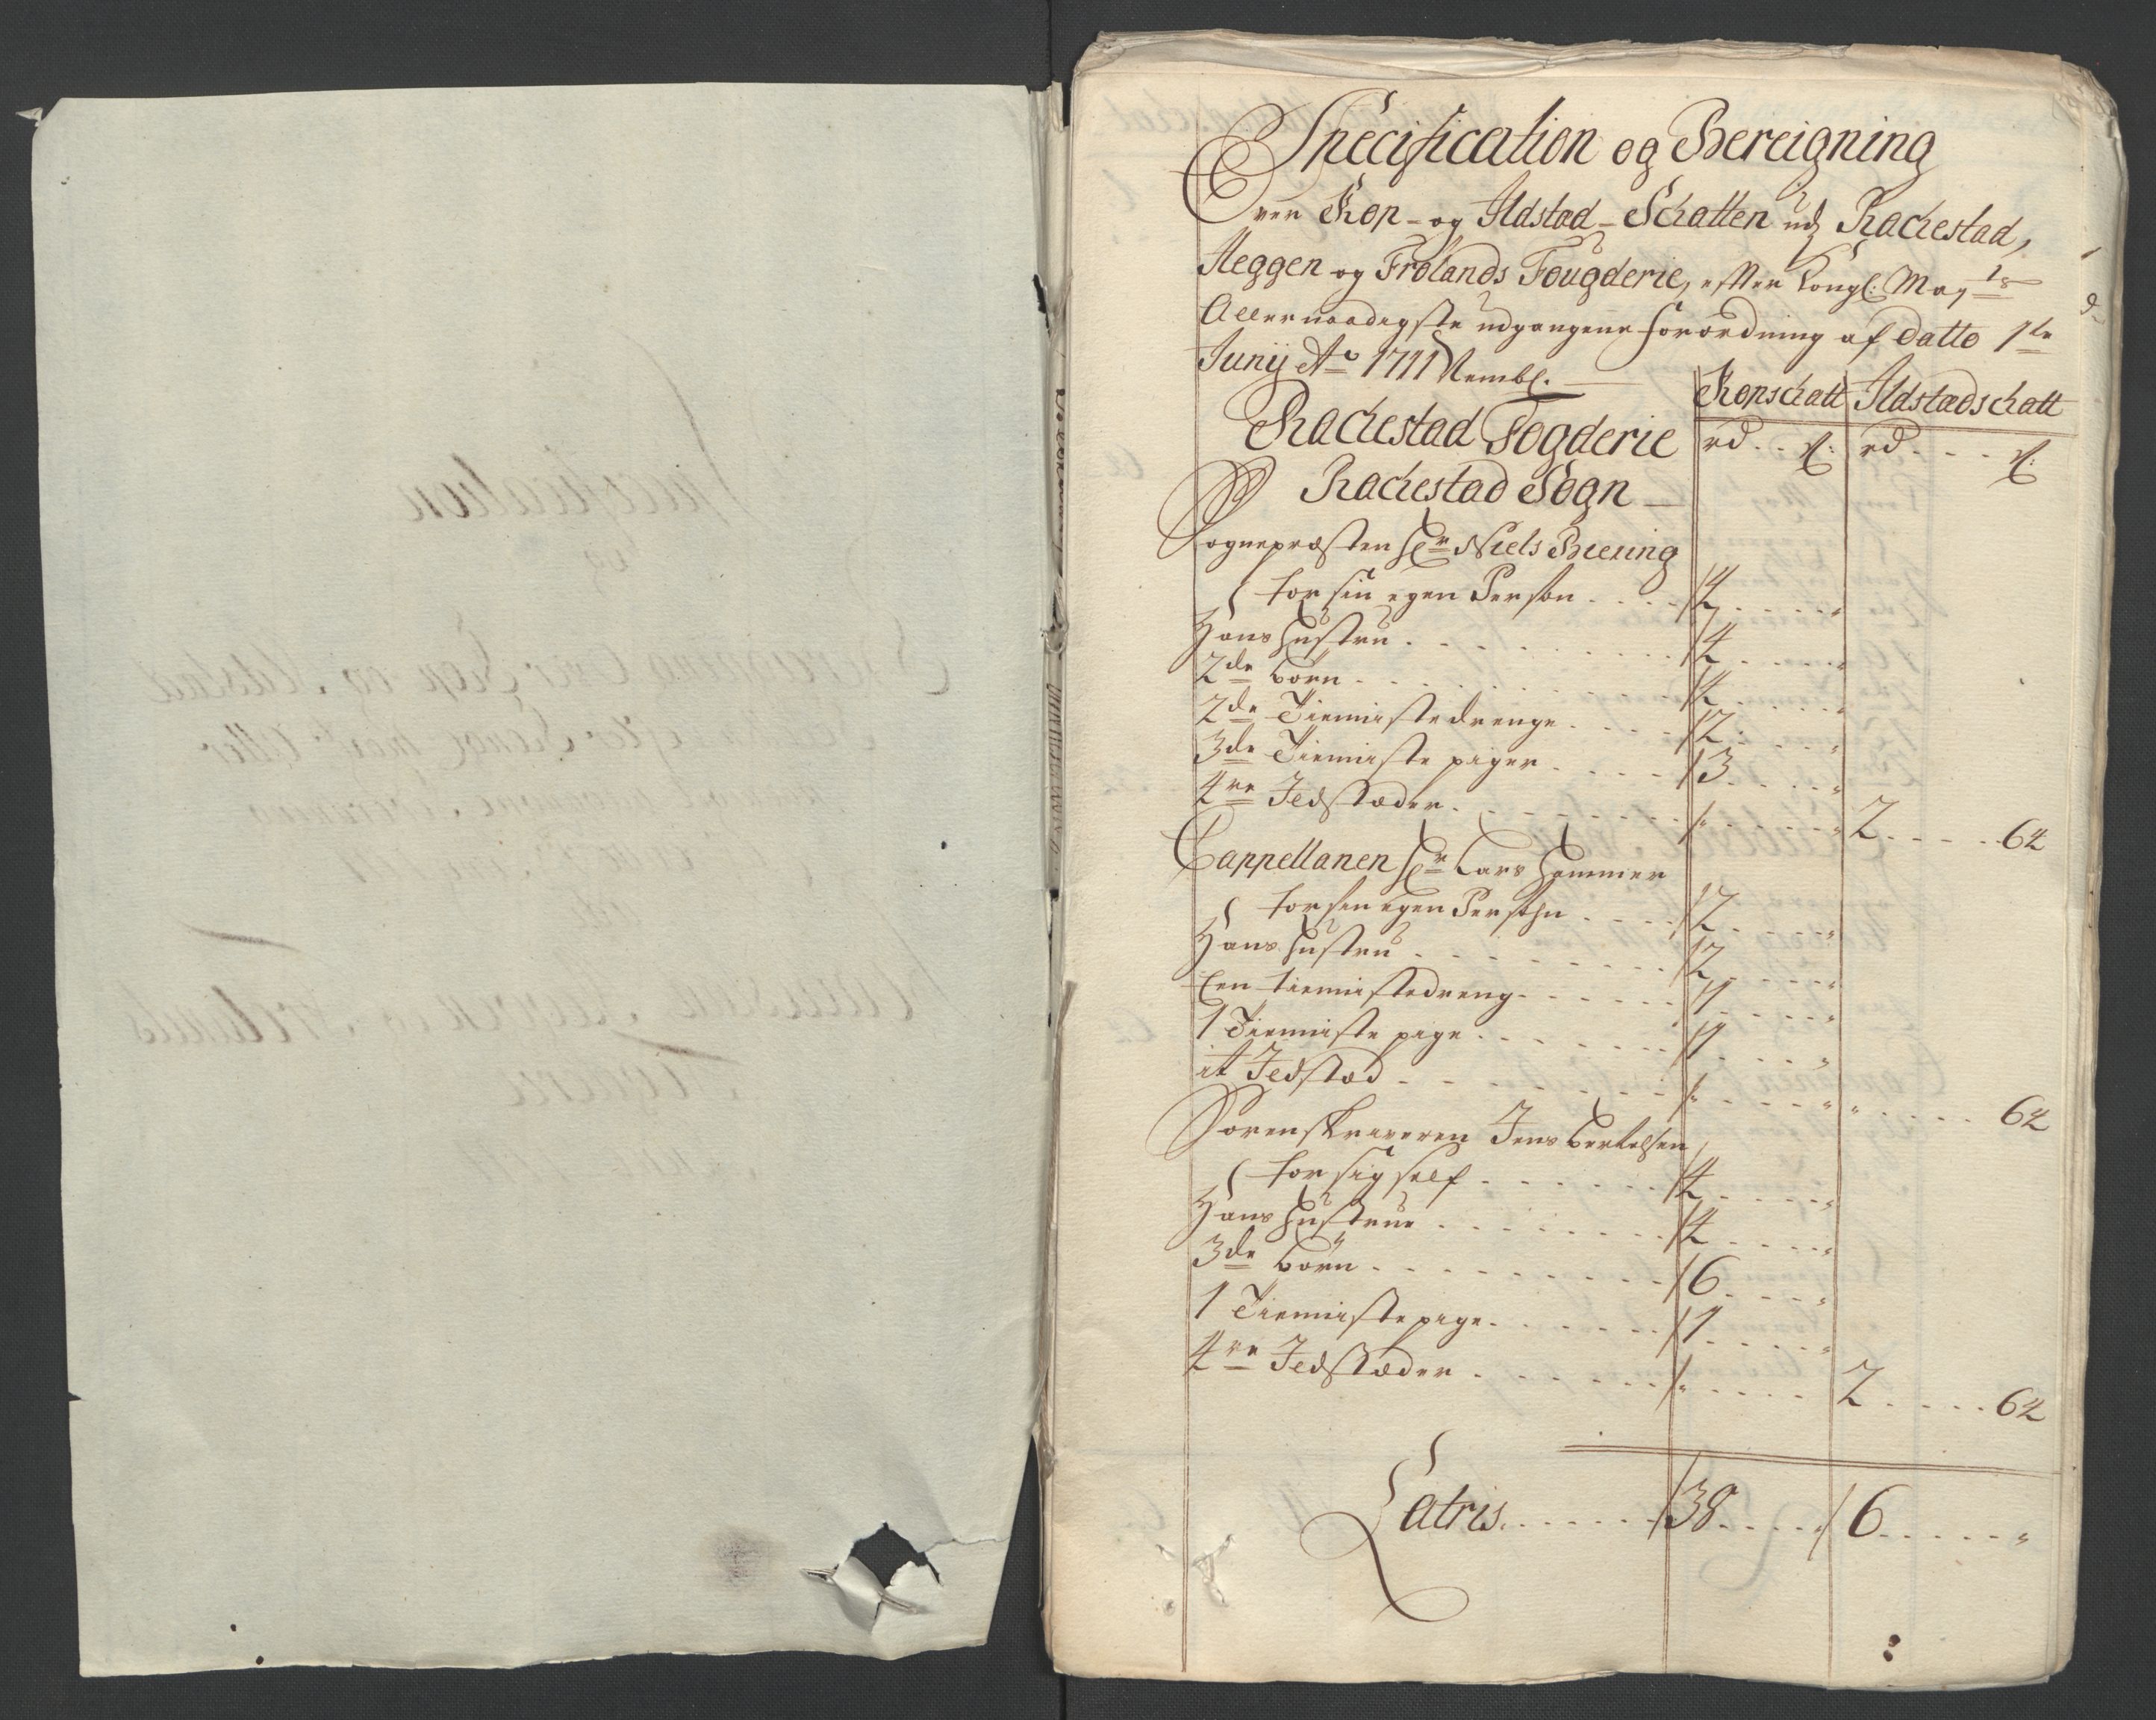 Specification og Bereigning
Over Kop- og Ildstæd-Schatten udj Rachestad,
Heggen og Frølands Fougderie, efter Kongl: May:ts
Allernaadigste udgangene forordning af Datto 1te
Junij Ao 1711
Kopschatt Ildstædschatt
Rachestad Fogderie rd . . ß: rd . . . ß:
Rachestad Sogn
Sognepræsten Hr Niels Biering
for sin egen Person . . . . 4 . . . . "
Hans Hustru . . . . . . . 4 . . . . "
2de børn . . . . . . . . 4 . . . . "
2de Tienniste drenge . . . . 2 . . . . "
3de Tienniste piger . . . . 3 . . . . "
4re Ildstæder . . . . . . . " . . . . " 2 . . . . 64
Cappellanen Hr Lars Hammer
for sin egen Persohn . . . . 2 . . . . "
Hans Hustru . . . . . . . 2 . . . . "
Een tiennistedreng . . . . . 1 . . . . "
1 Tienniste pige . . . . . . 1 . . . . "
it Ildstæd . . . . . . . . " . . . . " " . . . . 64
Sorenskriveren Jens Bertelsen
for sig self . . . . . . 4 . . . . "
Hans Hustrue . . . . . . 4 . . . . "
3de børn . . . . . . . . 6 . . . . "
1 Tienniste pige . . . . . . 1 . . . . "
4re Ildstæder . . . . . . " . . . . 2 . . . . 64
Latris . . . . . . 38 . . . . 6 . . . . "